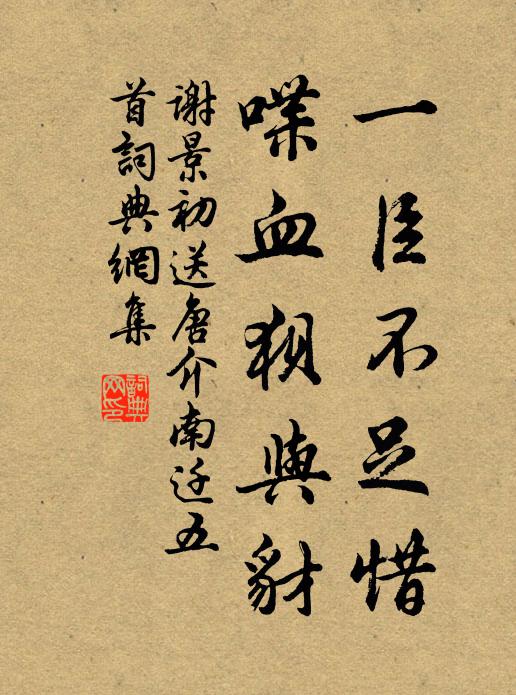 一臣不足惜
喋血狽與豺
謝景初送唐介南迁五
首詞典網集
詞典
网印